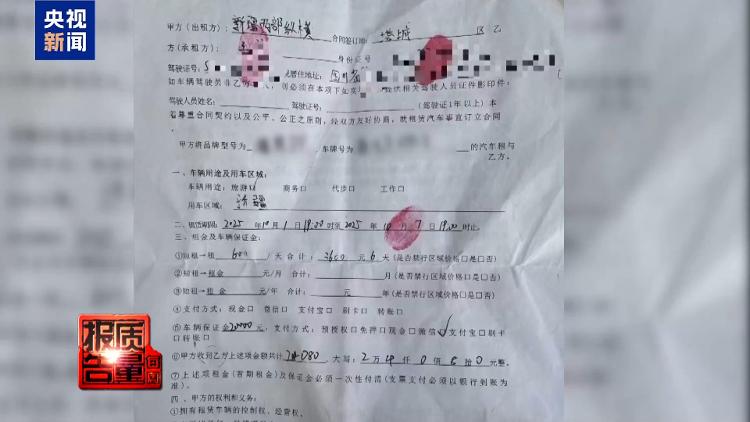 央视
新闻
甲方（出租方）：新疆西部纵横 合同签订地： 塔城 区 乙
方（承租方）： 身份证号
驾驶证号： 居住地址：四川省
如车辆驾驶员非乙方 人，则必须在本项下如实 供相关驾驶人员证件影印件：
驾驶人员姓名： 驾驶证号： （驾驶证1年以上）本
着尊重合同契约以及公平、公正之原则，经双方友好协商，就租赁汽车事宜订立合同
甲方将品牌型号为 车牌号为 的汽车租与
乙方。
一、车辆用途及用车区域：
车辆用途：旅游口 商务口 代步口 工作口
用车区域： 新疆
二、租赁期限：2025年10月1日19:00时至2025年10月7日19:00时止。
三、租金及车辆保证金：
①短租→租 600 /天 合计： 3600 元 6 天（是否禁行区域价格口是口否）
②短租→租金 元/月 合计： 月（是否禁行区域价格口是口否）
③短租→租金 元/年 合计： 元 年（是否禁行区域价格口是口否）
④支付方式：现金口 微信口 支付宝口 刷卡口 转账口
⑤车辆保证金20000元；支付方式：预授权口免押口现金口微信 支付宝口刷卡
口转账口
⑥甲方收到乙方上述项金额共计 大写：2万4仟0佰8拾0元整。
⑦上述项租金（首期租金）及保证金必须一次性付清（支票支付必须以银行到账为
准）。
四、甲方的权利和义务：
①拥有租赁车辆的控制权、经营权。
质量
报告
每周